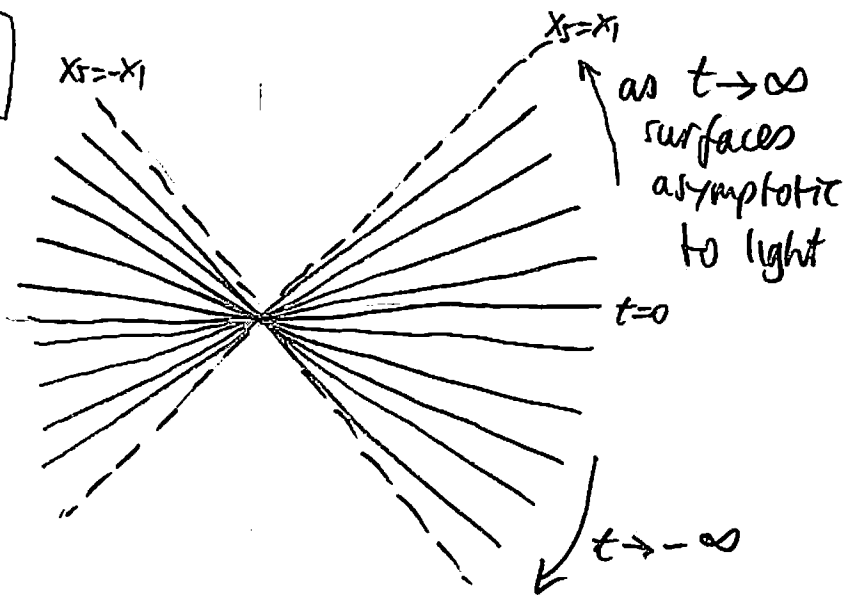 x5=-x1
x5=x1
as t→∞
surfaces
asymptotic
to light
t=0
t→-∞